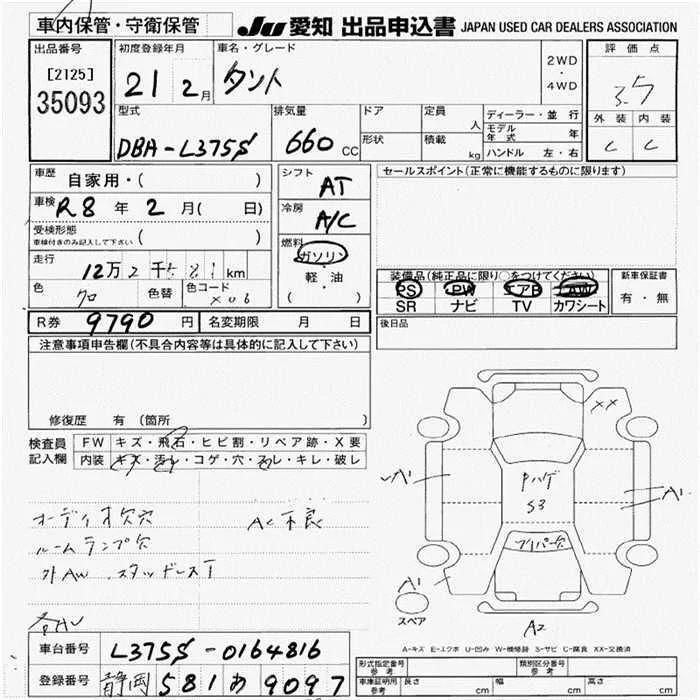 車内保管・守衛保管
JU 愛知 出品申込書 JAPAN USED CAR DEALERS ASSOCIATION
出品番号
[2125]
35093
初度登録年月
21 2月
車名・グレード
タント
2WD
・
4WD
評価点
3.5
外装 内装
C C
型式
DBA-L375S
排気量
660 CC
ドア
形状
定員
人
積載
kg
ディーラー・並行
モデル年式 年
ハンドル 左・右
車歴
自家用・( )
車検 R8年 2月( 日)
受検形態
車検付きのみ記入して下さい ( )
走行
12万2千581km
色 クロ 色替 色コード X06
シフト
AT
冷房
A/C
燃料
ガソリン
・
軽・油
( )
セールスポイント(正常に機能するものに限ります)
装備品(純正品に限り○をつけてください)
PS PW エアB AW
SR ナビ TV カワシート
新車保証書
有・無
後日品
R券 9790円 名変期限 月 日
注意事項申告欄(不具合内容等は具体的に記入して下さい)
修復歴 有(箇所 )
検査員記入欄
FW キズ・飛石・ヒビ割・リペア跡・X要
内装 キズ・汚れ・コゲ・穴・スレ・キレ・破レ
オーディオ欠穴 AC不良
ルームランプ欠
外AW スタッドレスT
XX
A1
Pハゲ
S3
A1
フリパー欠
A1
スペア
A2
A-キズ E-エクボ U-凹み W-補修跡 S-サビ C-腐食 XX-交換済
車台番号 L375S-0164816
登録番号 静岡 581 あ 9097
形式指定番号
参考
類別区分番号
参考
車庫証明用
参考
長さ cm 幅 cm 高さ cm